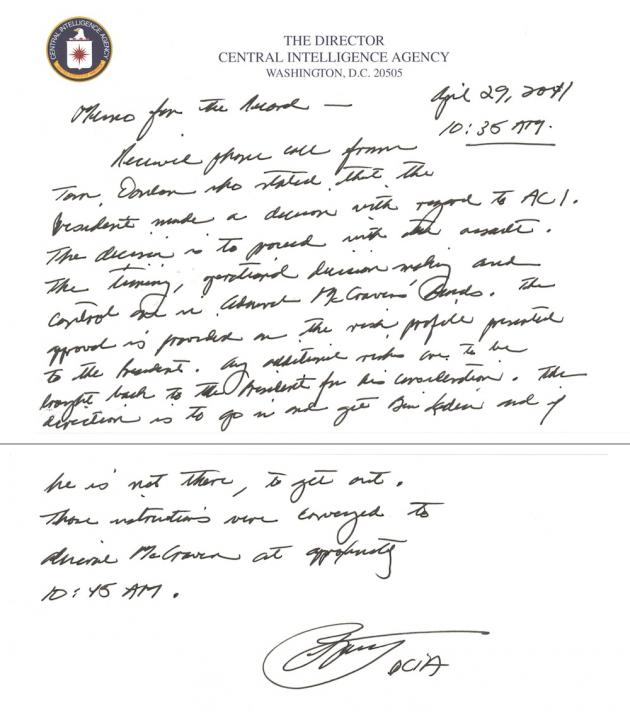 CENTRAL INTELLIGENCE AGENCY
THE DIRECTOR
CENTRAL INTELLIGENCE AGENCY
WASHINGTON, D.C. 20505
Memo for the Record —
April 29, 2011
10:35 AM.
Received phone call from
Tom Donilon who stated that the
President made a decision with regard to AC1.
The decision is to proceed with the assault.
The timing, operational decision making and
control are in Admiral McRaven's hands. The
approval is provided on the risk profile presented
to the President. Any additional risks are to be
brought back to the President for his consideration. The
direction is to go in and get Bin Laden and if
he is not there, to get out.
Those instructions were conveyed to
Admiral McRaven at approximately
10:45 AM.
DCIA